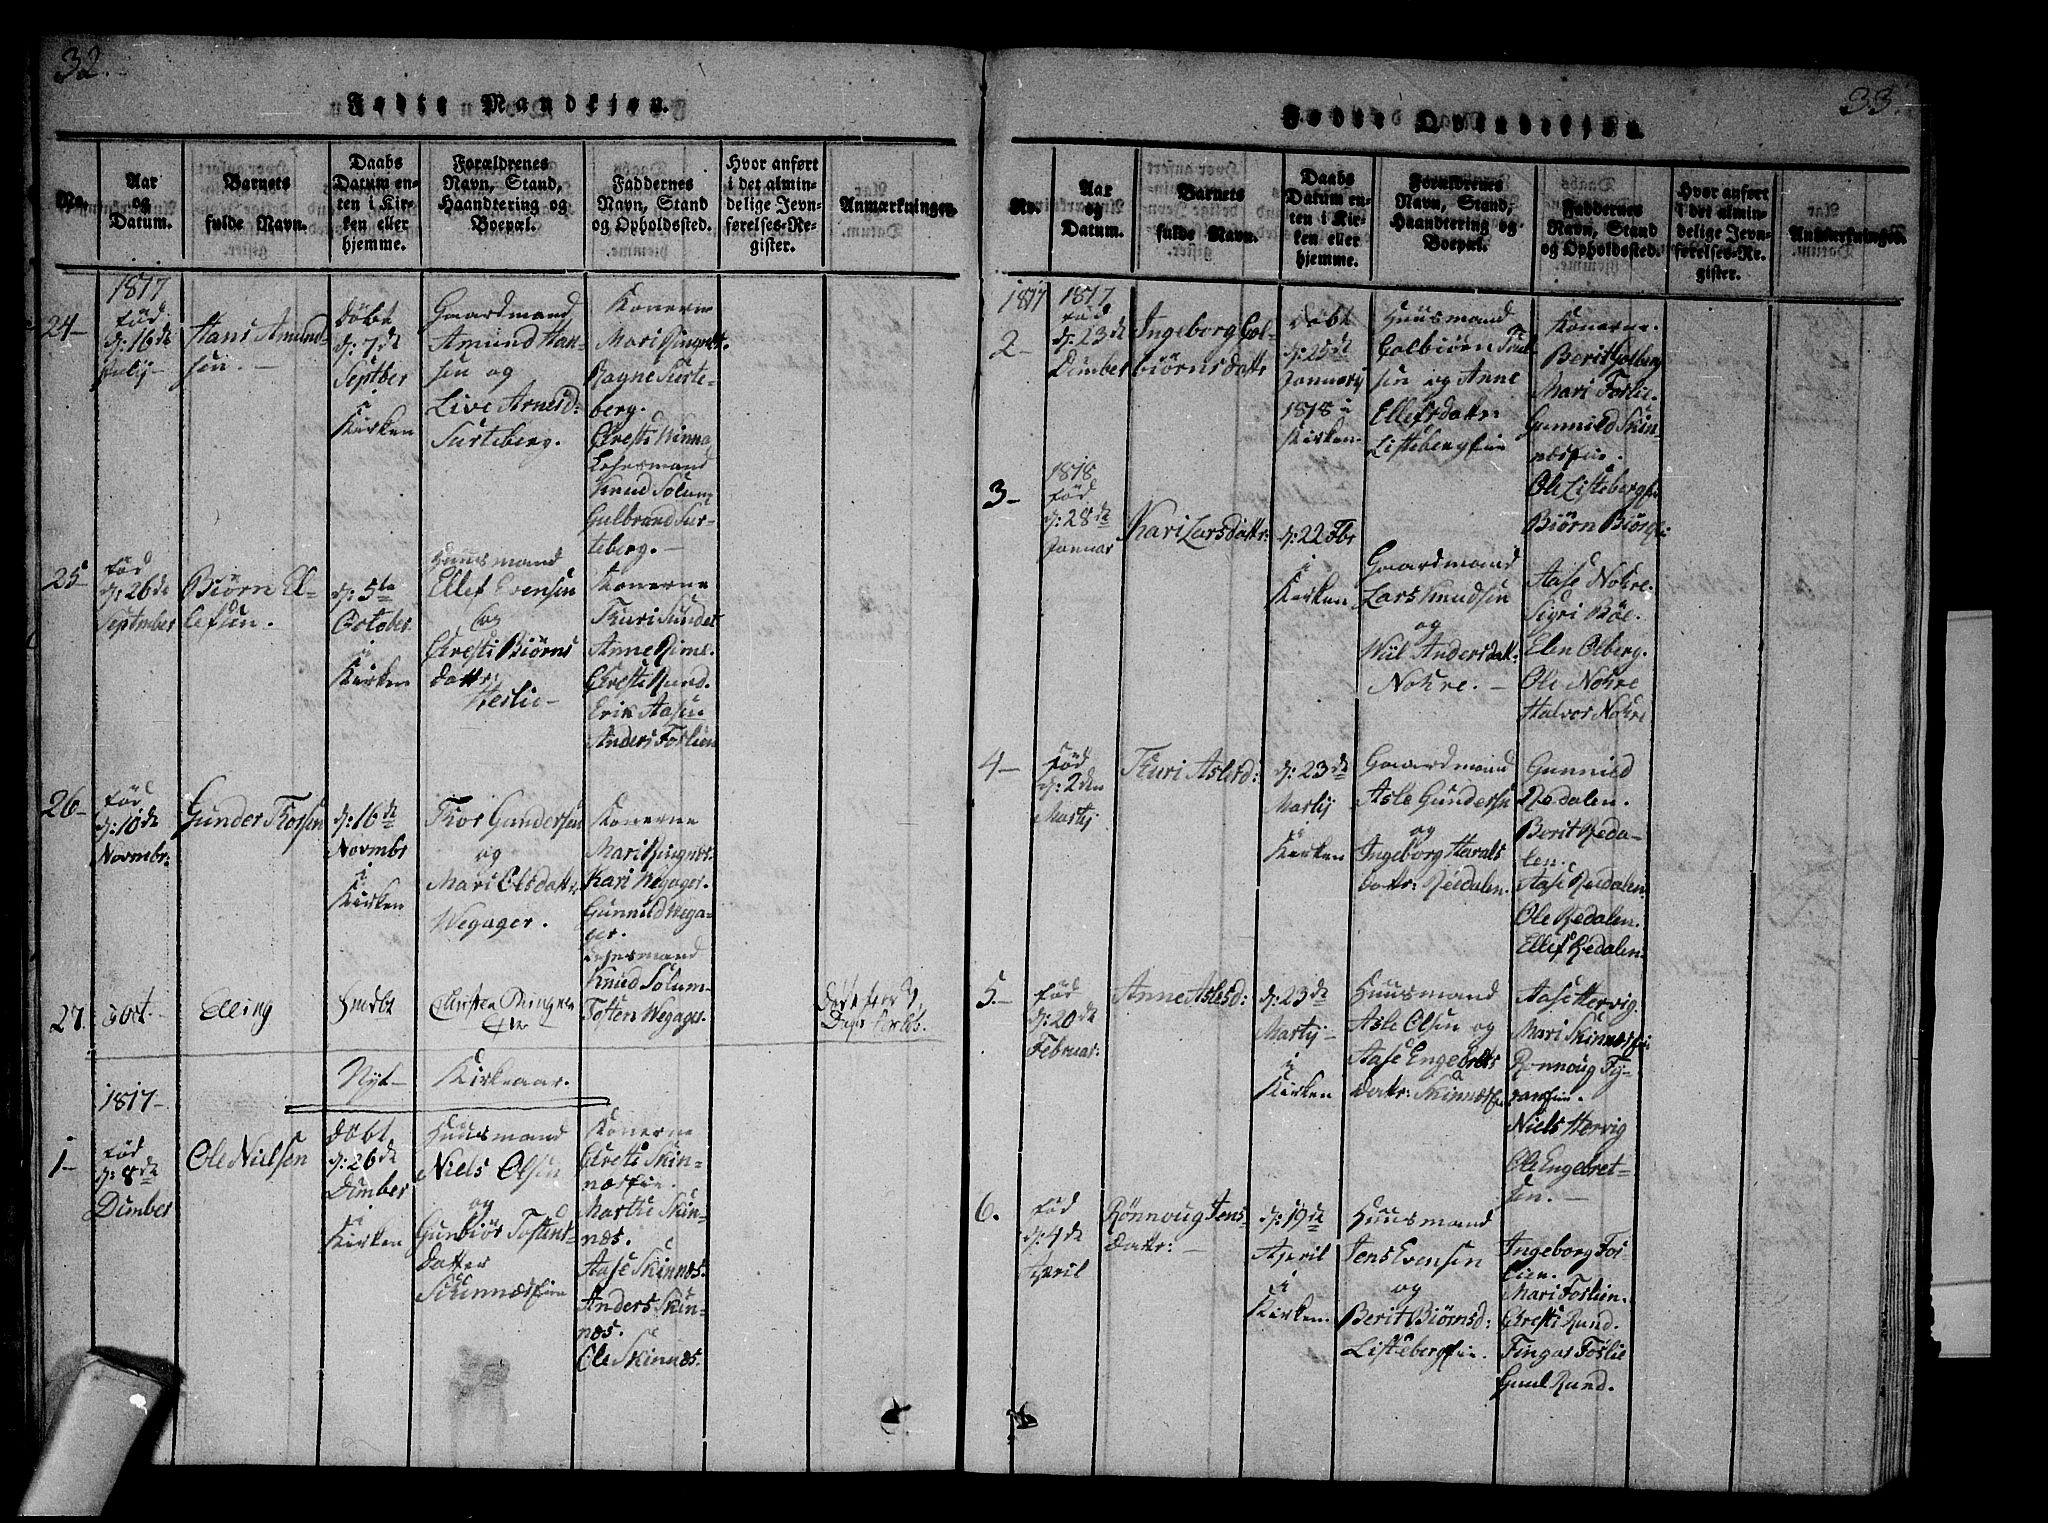 32.
Fødte Mandkiøn.
No.
Aar
og
Datum.
Barnets
fulde Navn.
Daabs
Datum en-
ten i Kir-
ken eller
hjemme.
Forældrenes
Navn, Stand,
Haandtering og
Boepæl.
Faddernes
Navn, Stand
og Opholdssted.
Hvor anført
i det almin-
delige Jevn-
førelses-Re-
gister.
Anmærkninger.
24-
1817
fød
d: 16de
Julij-
Hans Amund-
sen.-
Døbt
d: 7de
Septber
i
Kirken
Gaardmand
Amund Han-
sen og
Live Arnesd:
Surteberg.
Konerne
Mari Ringnes.
Ragne Surte-
berg.
Christi Rinna
Lehnsmand
Knud Solum
Gulbrand Sur-
teberg.-
25-
fød
d: 26de
September
Biørn El-
lefsen.
d: 5te
October
i
Kirken
Huusmand
Ellef Evensen
og
Christi Biørns
Dattr:
Herlie-
Konerne
Thuri Sunder
Anne Rime.
Christi Rund.
Erik Aasen
Anders Foslien
26-
fød
d: 10de
Novmbr:
Gunder Thorsen
d: 16de
Novmbr
i
Kirken
Thor Gundersen
og
Mari Olsdattr:
Wegager.
Konerne
Mari Ringnæs.
Kari Wegager.
Gunnild Wega-
ger.
Lehnsmand
Knud Solum-
Tosten Wegager.
27.
Elling
1817-
Nyt-
Kirkeaar.
1-
fød
d: 8de
Dcmber
Ole Nielsen
Døbt
d: 26de
Dcmber
i
Kirken
Huusmand
Niels Olsen
og
Gunbiør Tostens-
datter
Skinnæseie
Konerne
Christi Skin-
næseie.
Marthe Skin-
næs.
Aase Skinnæs.
Anders Skin-
næs.
Ole Skinnæs.
33.
Fødte Qvindekiøn.
No.
Aar
og
Datum.
Barnets
fulde Navn.
Daabs
Datum en-
ten i Kir-
ken eller
hjemme.
Forældrenes
Navn, Stand,
Haandtering og
Boepæl.
Faddernes
Navn, Stand
og Opholdssted.
Hvor anført
i det almin-
delige Jevn-
førelses-Re-
gister.
Anmærkninger.
1817
2-
1817
fød
d: 23de
Dcmber
Ingeborg Col-
biørnsdattr
Døbt
d: 25de
Januarij
1818 i
Kirken.
Huusmand
Colbiørn
sen og Anne
Ellefsdattr:
Listebergeie
Konerne.
Berit Golberg
Mari Foslie.
Gunnild Skin-
næseie.
Ole Listebergeie
Biørn
3-
1818
fød
d: 28de
Januar
Kari Larsdattr:
d: 22 Fbr
i
Kirken
Gaardmand
Lars Knudsen
og
Andersdattr:
Nohre.-
Aase Nohre.
Sigri Bøe.
Elen Olberg.
Ole Nohre
Halvor Nohre
4-
fød
d: 2den
Martij
Thuri Aslesd:
d: 23de
Martij
i
Kirken
Gaardmand
Asle Gundersen
og
Ingeborg Haralds
dattr: Reedalen.
Gunnild
Redalen.
Berit Reda-
len.
Aase Redalen
Ole Redalen.
Ellef Redalen.
5-
fød
d: 20de
Februar:
Anne Aslesd:
d: 23de
Martij-
i
Kirken
Huusmand
Asle Olsen og
Aase Engebrets
dattr: Skinnæseie
Aase Hervig.
Mari Skinnæseie
Ronnoug Fy-
raneie.
Niels Hervig
Ole Engebret-
sen.-
6.
fød
d: 4de
April
Rønnoug Jens-
dattr:-
d: 19de
April
i
Kirken.
Huusmand
Jens Evensen
og
Berit Biørnsd:
Listebergeie.
Ingeborg Fos-
lien.
Mari Foslien.
Christi Rund.
Fingar Foslie
Guul Rund.